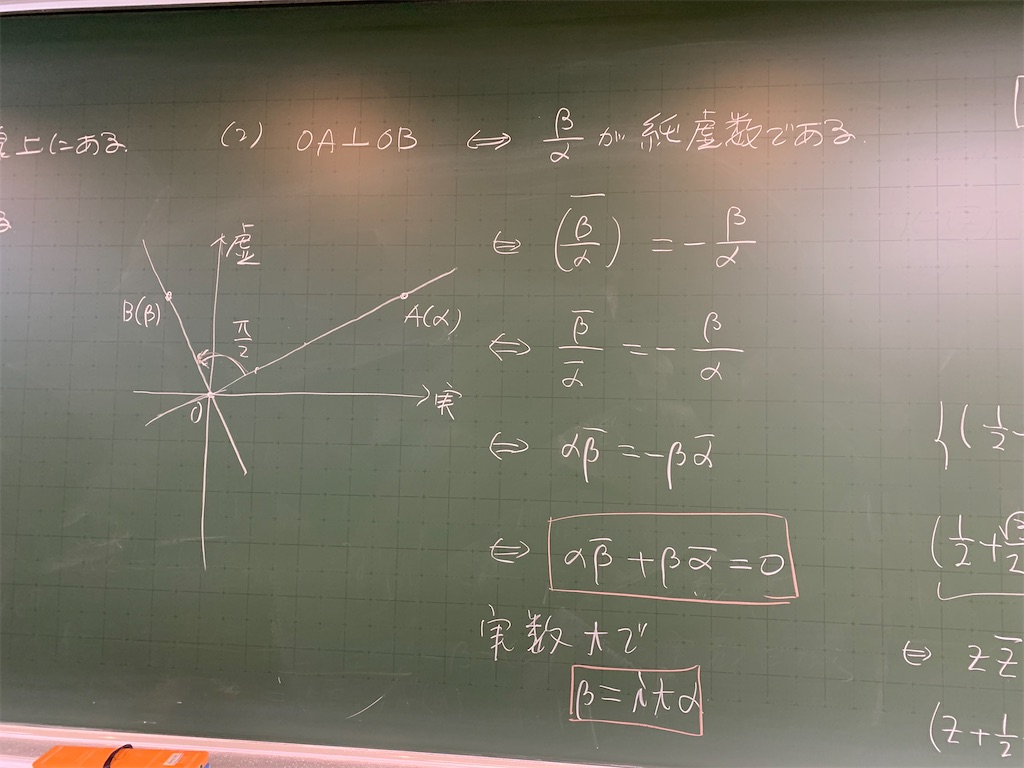 上にある
(2) OA⊥OB ⇔ β/α が純虚数である.
⇔ \overline{(β/α)} = -β/α
⇔ \overline{β}/\overline{α} = -β/α
⇔ α\overline{β} = -β\overline{α}
⇔ α\overline{β} + β\overline{α} = 0
実数 t で
β = itα
虚
B(β)
π/2
A(α)
O
実
{(1/2
(1/2 + √
⇔ z\overline{z}
(z + 1/2